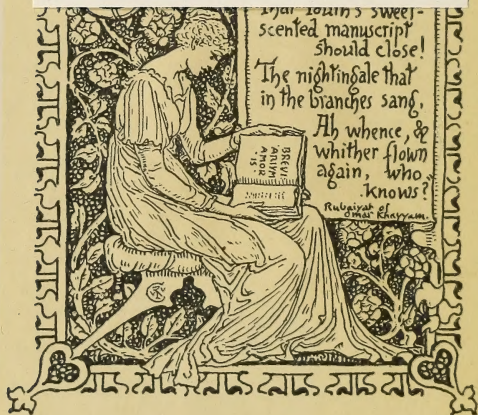 That Youth's sweet-
scented manuscript
should close!
The nightingale that
in the branches sang,
Ah whence, &
whither flown
again, who
knows?
Rubaiyat of
Omar Khayyam.
BREVI
ARIVM
AMOR
IS.